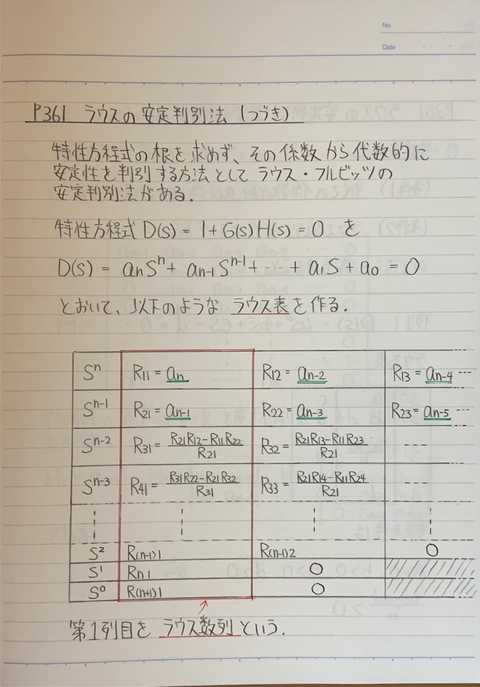 No.
Date
P361 ラウスの安定判別法(つづき)
特性方程式の根を求めず、その係数から代数的に
安定性を判別する方法としてラウス・フルビッツの
安定判別法がある.
特性方程式 D(S) = 1 + G(S) H(S) = 0 を
D(S) = anSⁿ + an-1 Sⁿ⁻¹ + --- + a1 S + a0 = 0
とおいて、以下のような ラウス表を作る.
Sⁿ R11 = an R12 = an-2 R13 = an-4 ---
Sⁿ⁻¹ R21 = an-1 R22 = an-3 R23 = an-5 ---
Sⁿ⁻² R31 = (R21R12-R11R22)/R21 R32 = (R21R13-R11R23)/R21 ---
Sⁿ⁻³ R41 = (R31R22-R21R32)/R31 R33 = (R21R14-R11R24)/R21 ---
S² R(n-1)1 R(n-1)2 0
S¹ Rn1 0
S⁰ R(n+1)1 0
第1列目を ラウス数列 という.